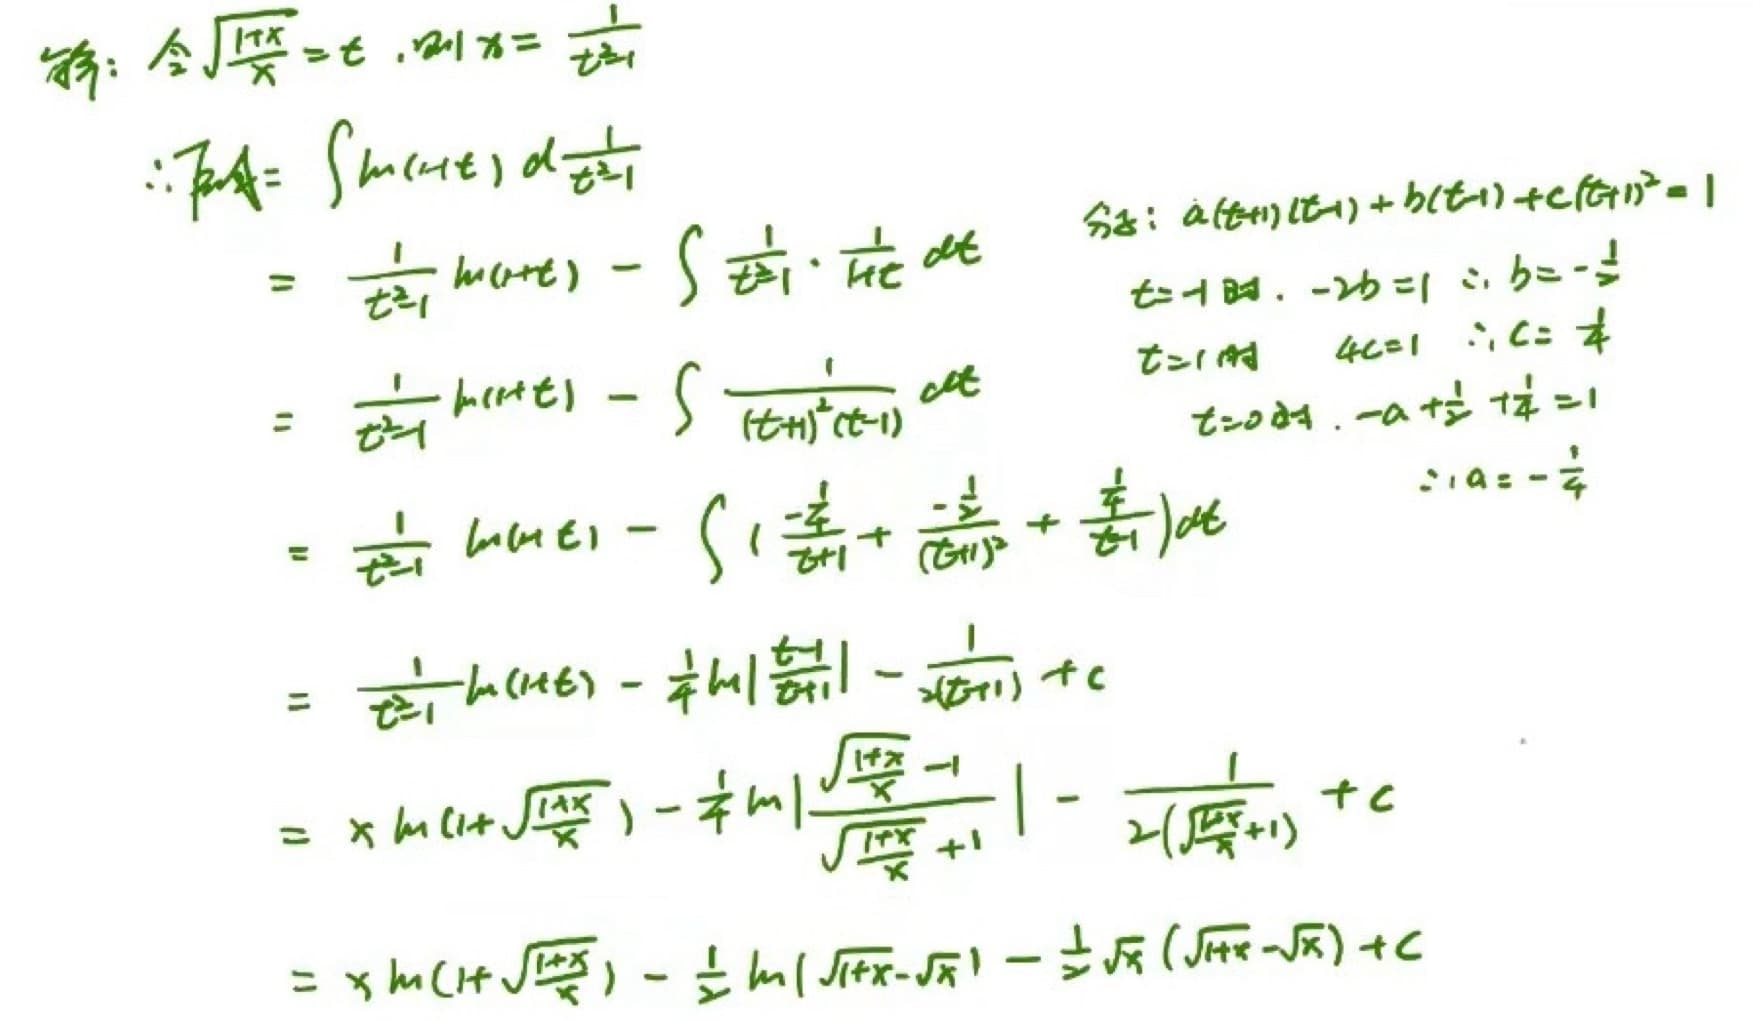 解: 令 √((1+x)/x) = t , 则 x = 1/(t²-1)
∴ 原式 = ∫ ln(1+t) d 1/(t²-1)
= 1/(t²-1) ln(1+t) - ∫ 1/(t²-1) · 1/(1+t) dt
= 1/(t²-1) ln(1+t) - ∫ 1/((t+1)²(t-1)) dt
= 1/(t²-1) ln(1+t) - ∫ ( (-1/4)/(t+1) + (-1/2)/(t+1)² + (1/4)/(t-1) ) dt
= 1/(t²-1) ln(1+t) - 1/4 ln|(t-1)/(t+1)| - 1/(2(t+1)) + c
= x ln(1+√((1+x)/x)) - 1/4 ln|(√((1+x)/x) - 1)/(√((1+x)/x) + 1)| - 1/(2(√((1+x)/x)+1)) + c
= x ln(1+√((1+x)/x)) - 1/2 ln(√(1+x)-√x) - 1/2 √x (√(1+x)-√x) + C
分子: a(t+1)(t-1) + b(t-1) + c(t+1)² = 1
t=-1时. -2b=1 ∴ b=-1/2
t=1时 4c=1 ∴ c=1/4
t=0时. -a+1/2+1/4=1
∴ a=-1/4